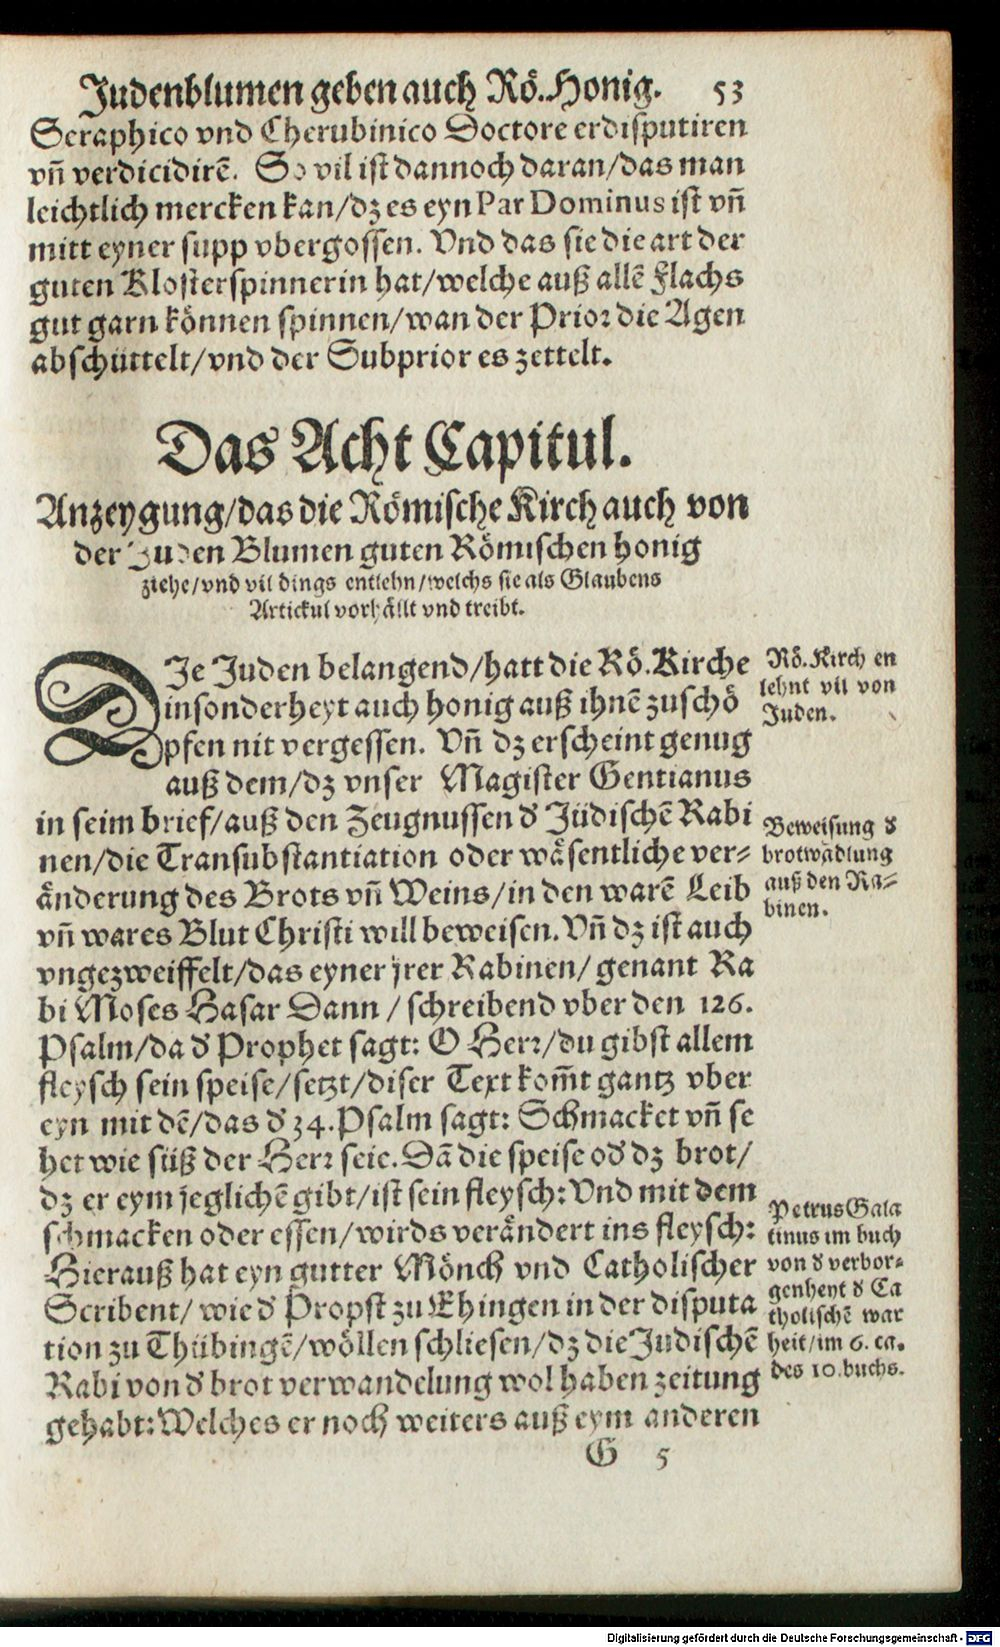 Judenblumen geben auch Rö. Honig. 53
Seraphico vnd Cherubinico Doctore erdisputiren
vñ verdicidirẽ. So vil ist dannoch daran/das man
leichtlich mercken kan/dz es eyn Par Dominus ist vñ
mitt eyner supp vbergossen. Vnd das sie die art der
guten Klosterspinnerin hat/welche auß allẽ Flachs
gut garn können spinnen/wan der Prior die Agen
abschüttelt/vnd der Subprior es zettelt.
Das Acht Capitul.
Anzeygung/das die Römische Kirch auch von
der Juden Blumen guten Römischen honig
ziehe/vnd vil dings entlehn/welchs sie als Glaubens
Artickul vorhällt vnd treibt.
DIe Juden belangend/hatt die Rö. Kirche
insonderheyt auch honig auß ihnẽ zuschö
pfen nit vergessen. Vñ dz erscheint genug
auß dem/dz vnser Magister Gentianus
in seim brief/auß den Zeugnussen d' Jüdischẽ Rabi
nen/die Transubstantiation oder wäsentliche ver-
änderung des Brots vñ Weins/in den warẽ Leib
vñ wares Blut Christi will beweisen. Vñ dz ist auch
vngezweiffelt/das eyner jrer Rabinen/genant Ra
bi Moses Hasar Dann/schreibend vber den 126.
Psalm/da d' Prophet sagt: O Herr/du gibst allem
fleysch sein speise/setzt/diser Text kom̃t gantz vber
eyn mit dẽ/das d' 34. Psalm sagt: Schmacket vñ se
het wie süß der Herr seie. Dã die speise od' dz brot/
dz er eym jeglichẽ gibt/ist sein fleysch: Vnd mit dem
schmacken oder essen/wirds verändert ins fleysch:
Hierauß hat eyn gutter Mönch vnd Catholischer
Scribent/wie d' Propst zu Ehingen in der disputa
tion zu Thübingẽ/wöllen schliesen/dz die Judischẽ
Rabi von d' brot verwandelung wol haben zeitung
gehabt: Welches er noch weiters auß eym anderen
G 5
Rö. Kirch en
lehnt vil von
Juden.
Beweisung d'
brotwãdlung
auß den Ra-
binen.
Petrus Gala
tinus im buch
von d' verbor-
genheyt d' Ca
tholischẽ war
heit/im 6. ca.
des 10. buchs.
Digitalisierung gefördert durch die Deutsche Forschungsgemeinschaft - DFG